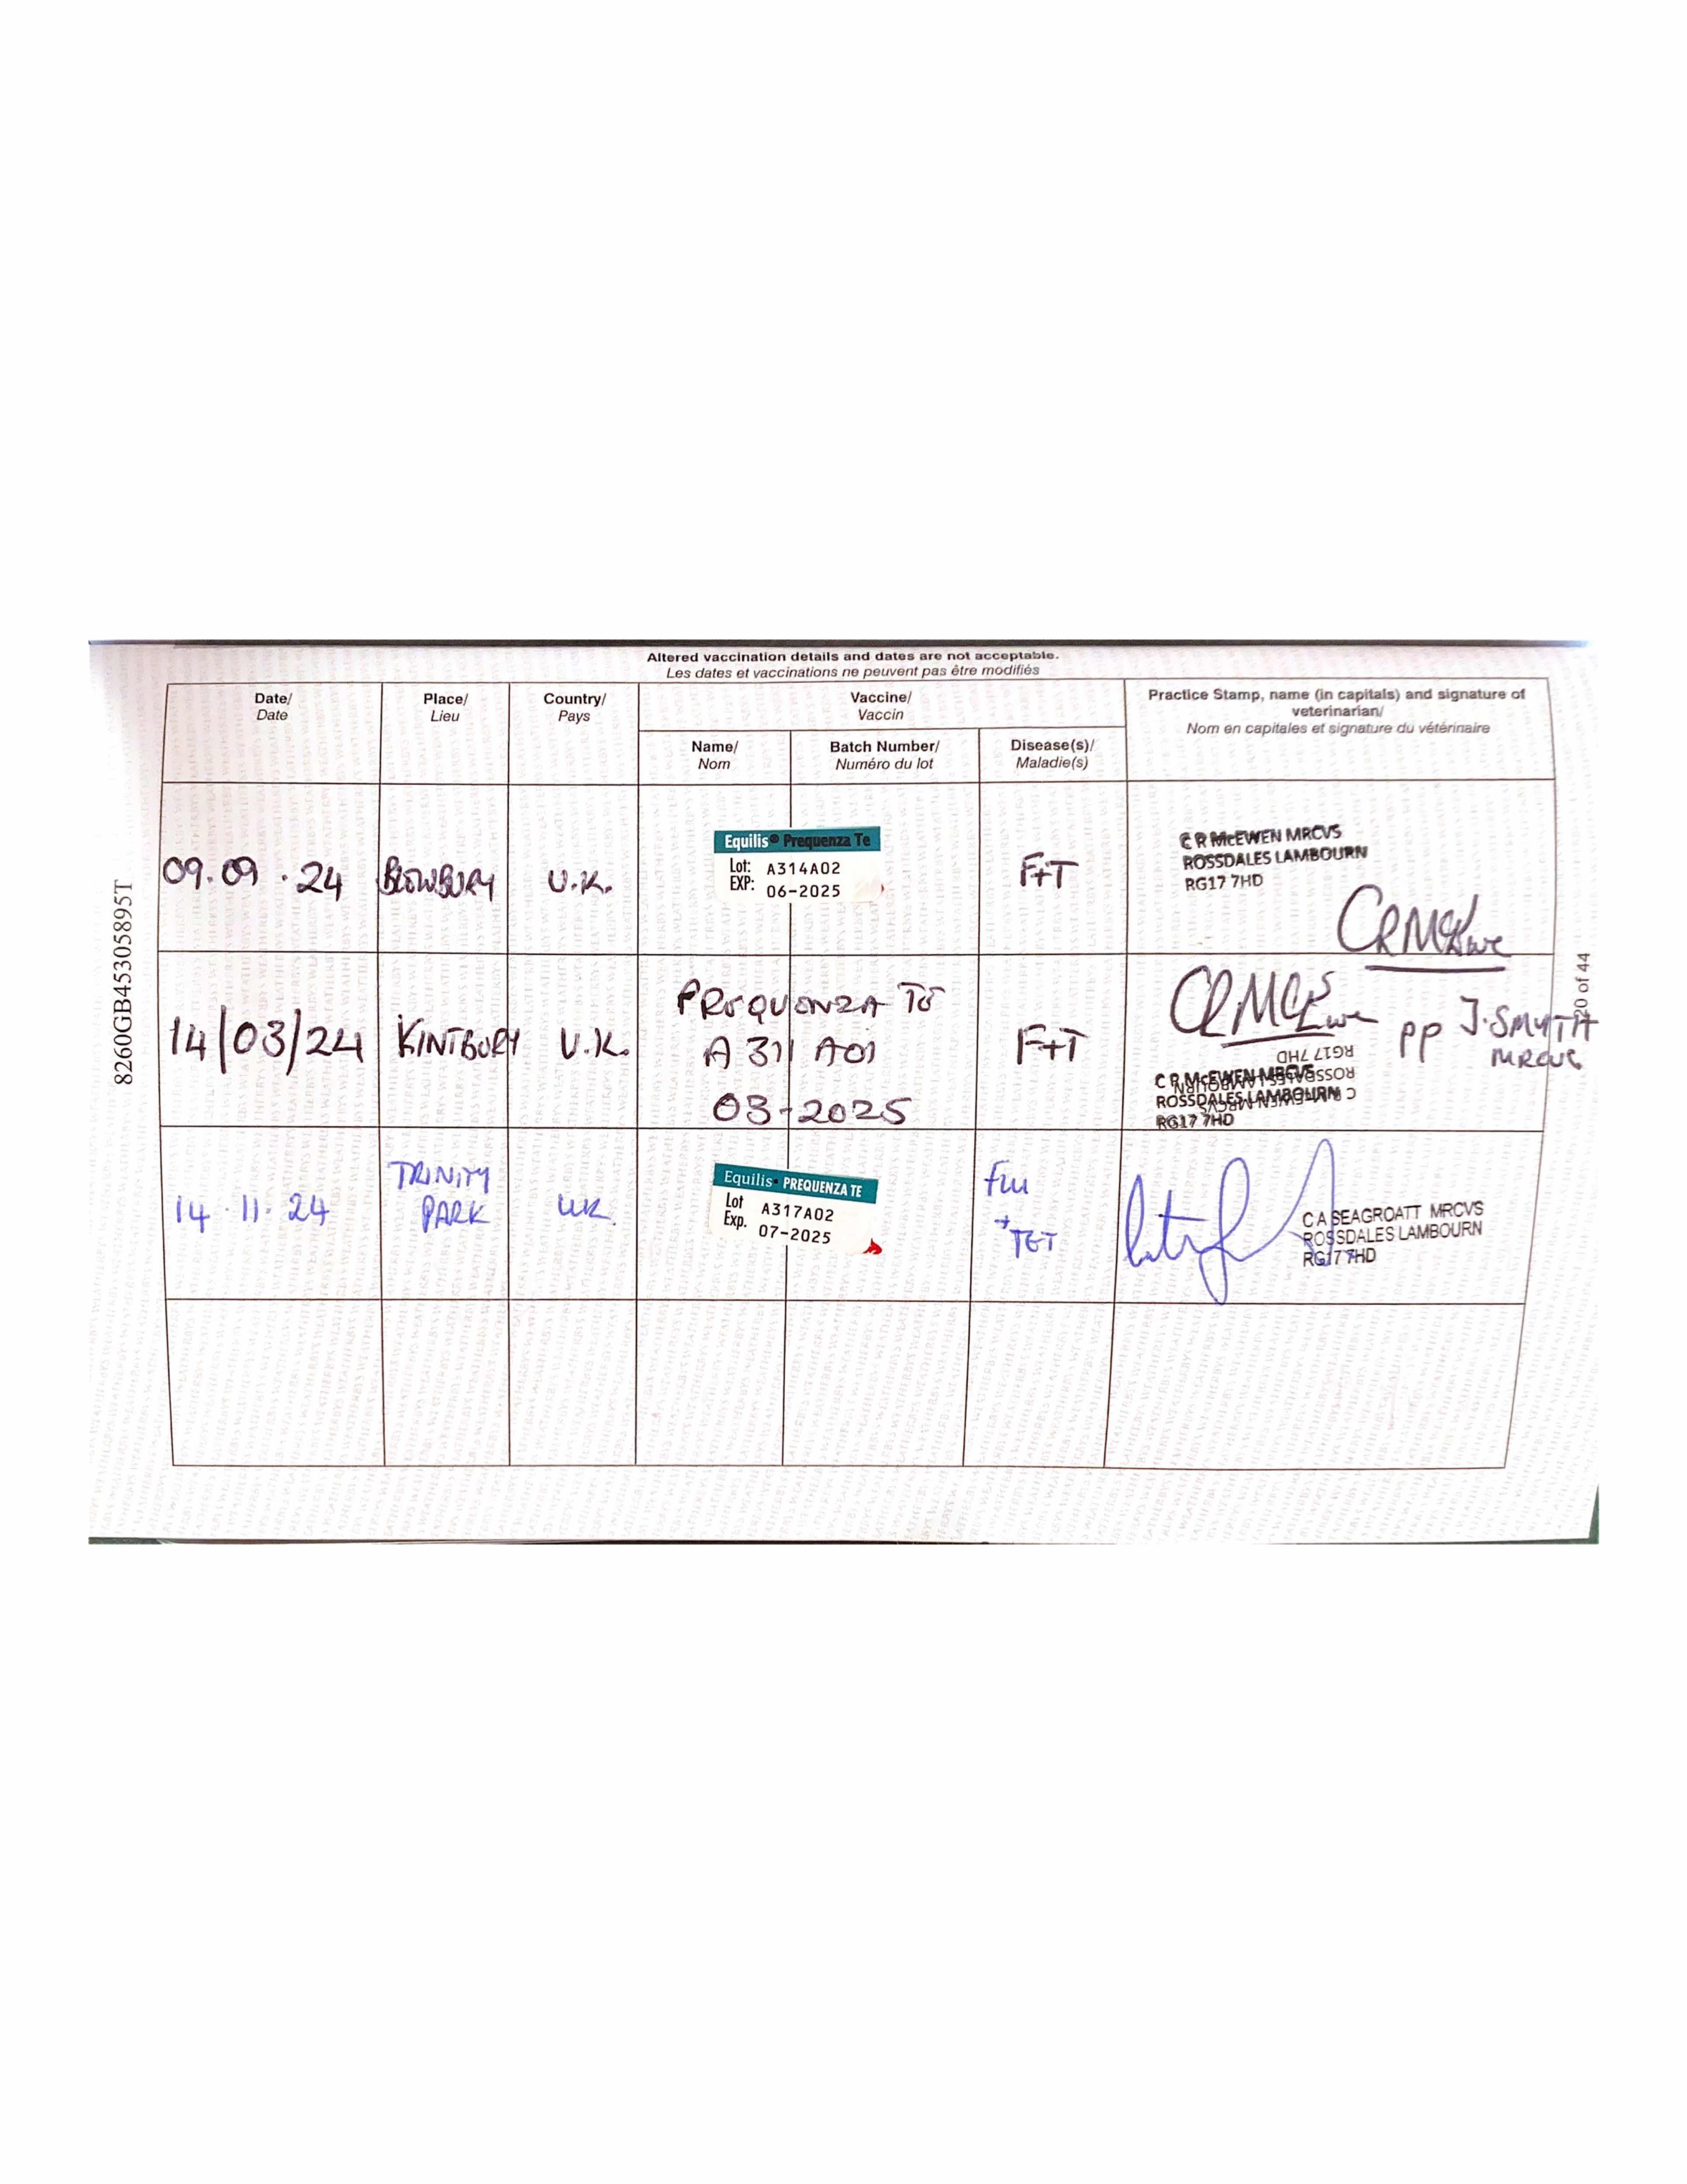 Altered vaccination details and dates are not acceptable.
Les dates et vaccinations ne peuvent pas être modifiés
Date/
Date
Place/
Lieu
Country/
Pays
Vaccine/
Vaccin
Name/
Nom
Batch Number/
Numéro du lot
Disease(s)/
Maladie(s)
Practice Stamp, name (in capitals) and signature of
veterinarian/
Nom en capitales et signature du vétérinaire
09.09.24
BLEWBURY
U.K.
Equilis® Prequenza Te
Lot: A314A02
EXP: 06-2025
F+T
C R McEWEN MRCVS
ROSSDALES LAMBOURN
RG17 7HD
CRMcEwe
14/03/24
KINTBURY
U.K.
PREQUENZA TE
A 311 A01
03-2025
F+T
CRMcEwe
pp J. SMYTH
MRCVS
RG17 7HD
ROSSDALES LAMBOURN
C R McEWEN MRCVS
C R McEWEN MRCVS
ROSSDALES LAMBOURN
RG17 7HD
14.11.24
TRINITY
PARK
UK
Equilis PREQUENZA TE
Lot A317A02
Exp. 07-2025
Flu
+
TET
C A SEAGROATT MRCVS
ROSSDALES LAMBOURN
RG17 7HD
8260GB45305895T
20 of 44